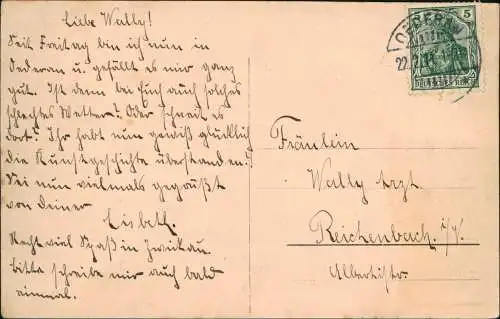 Liebe Wally!
Seit Freitag bin ich nun in
Oederan u. gefällt es mir ganz
gut. Ist denn bei Euch auch solches
schlechtes Wetter? Oder schneit es
dort? Ihr habt nun gewiß glücklich
die Kunstgeschichte überstanden?
Sei nun vielmals gegrüßt
von Deiner
Lisbeth.
Recht viel Spaß in Zwickau.
Bitte schreibe mir auch bald
einmal.
Fräulein
Wally Arzt.
Reichenbach i/V.
Albertistr.
OEDERAN
5
DEUTSCHES REICH